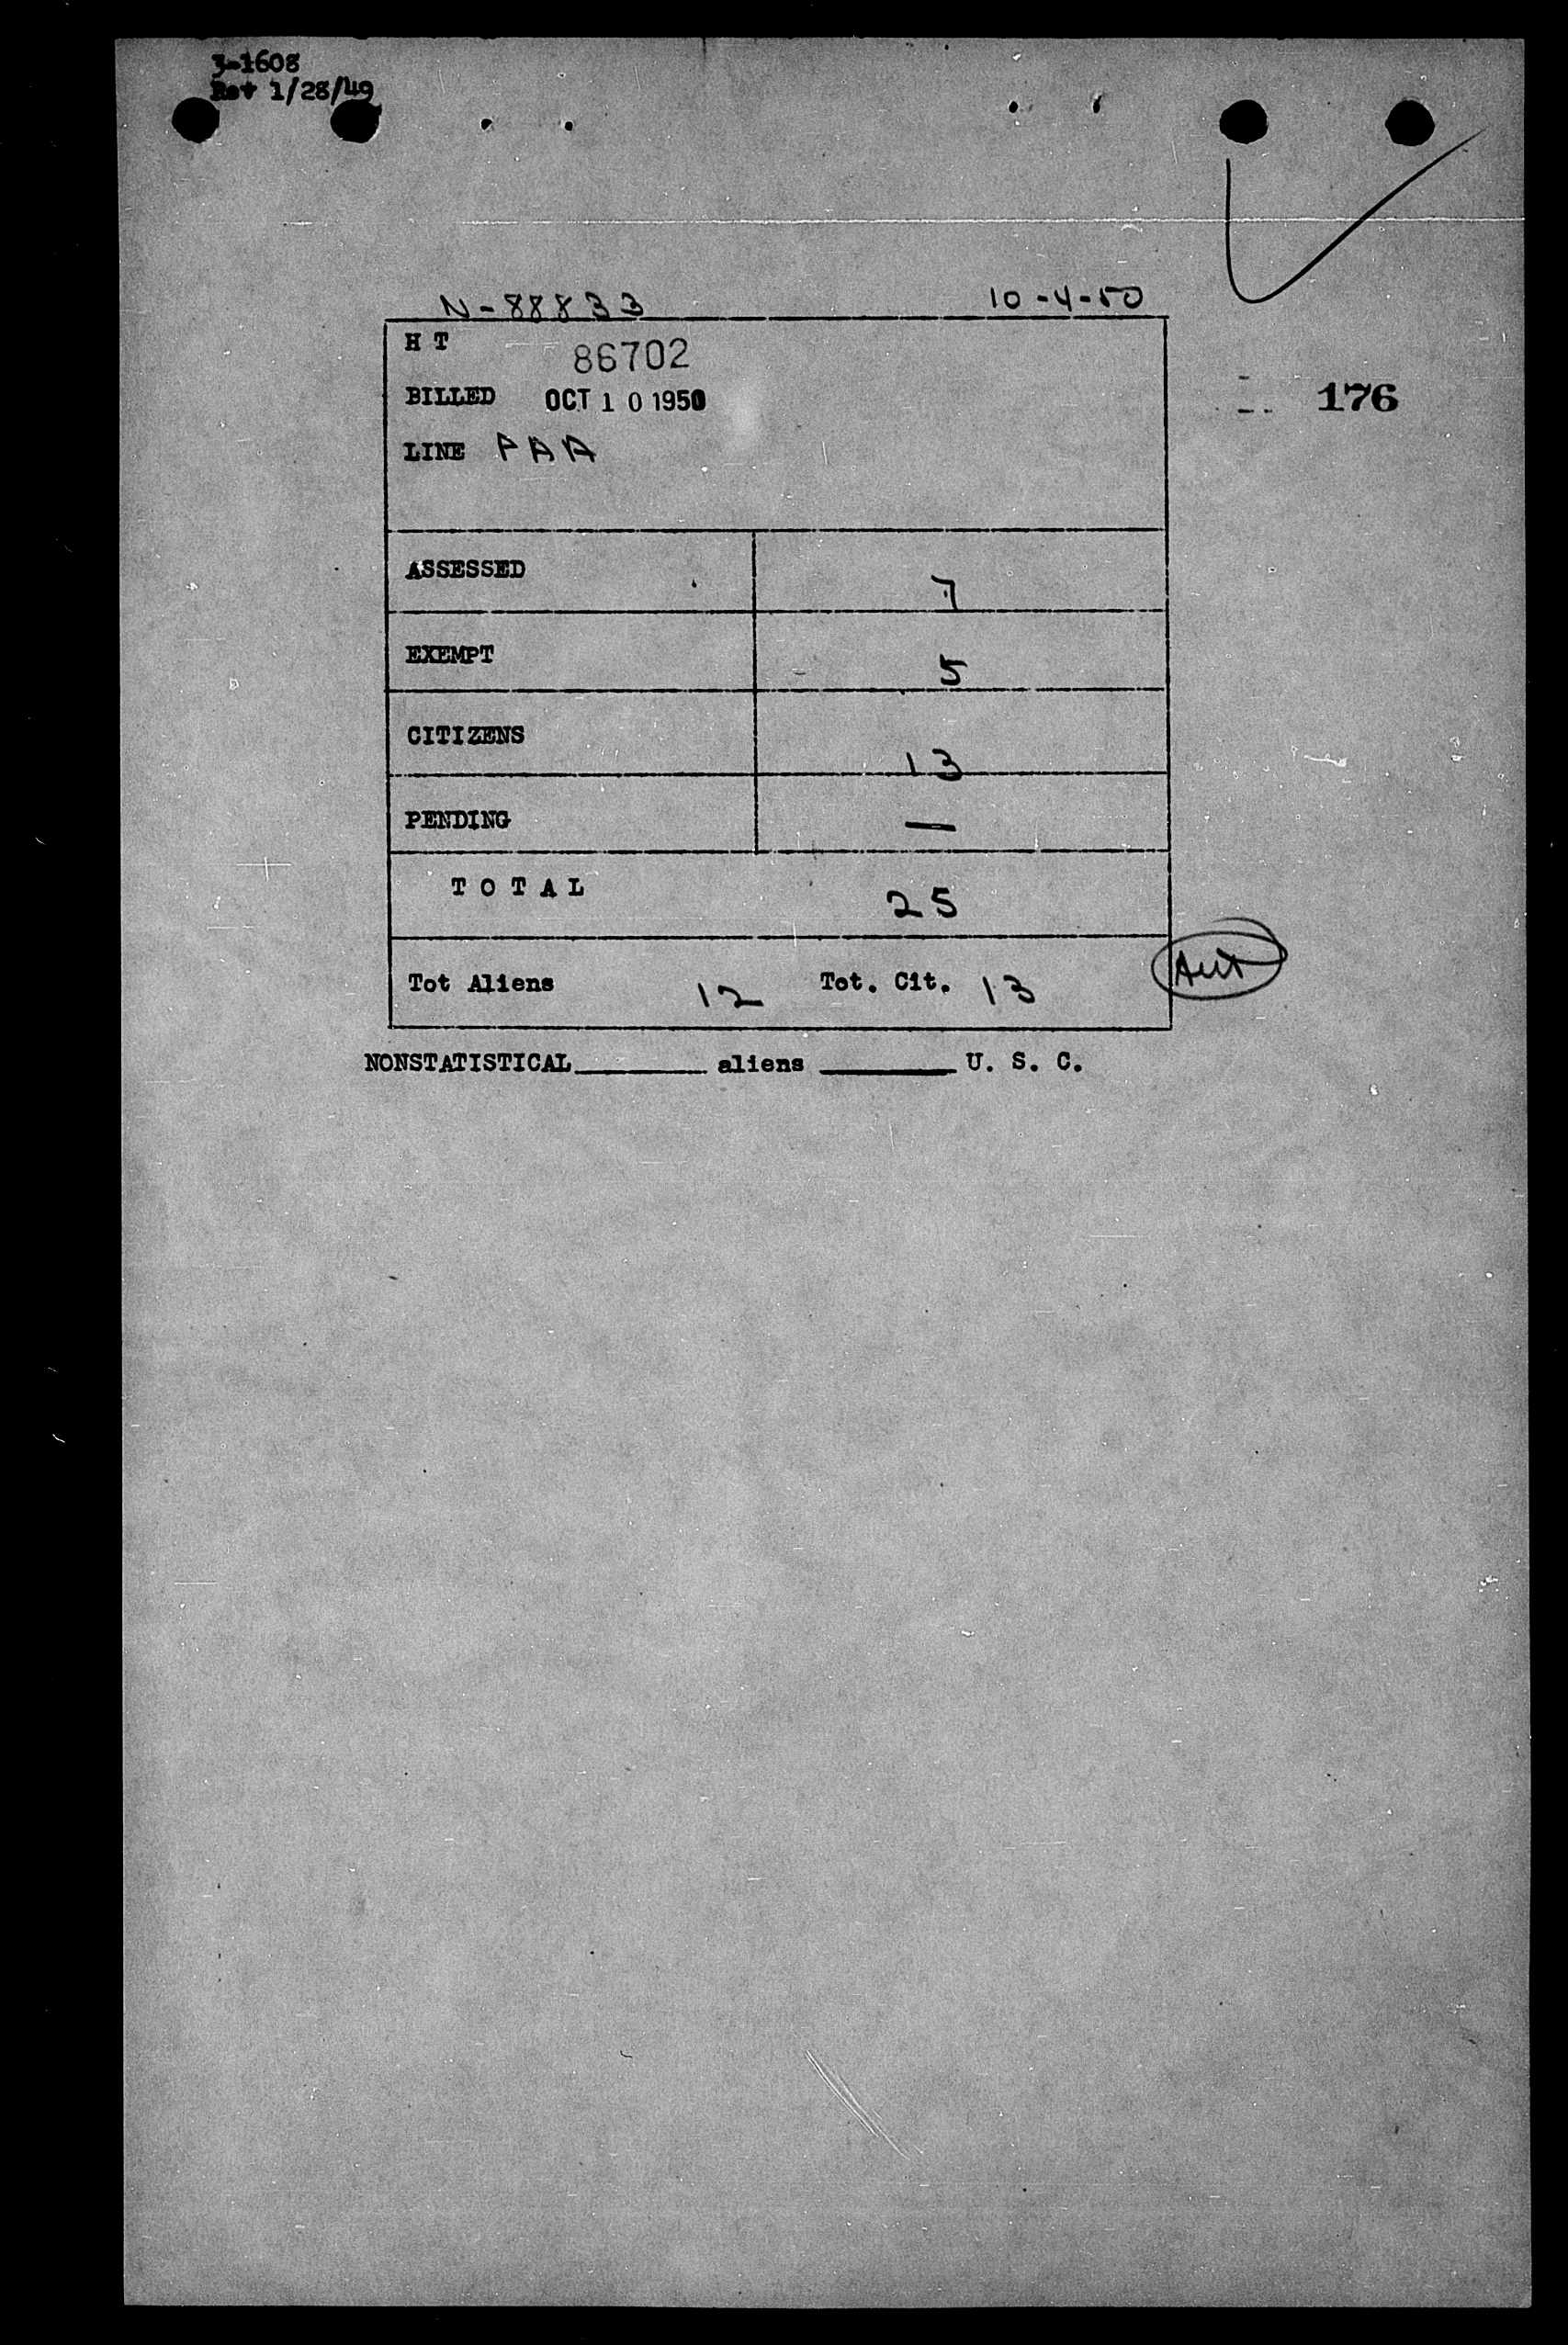 3-1608
Ret 1/28/49
N-88833 10-4-50
H T 86702
BILLED OCT 10 1950
176
LINE PAA
ASSESSED 7
EXEMPT 5
CITIZENS 13
PENDING —
TOTAL 25
Tot Aliens 12 Tot. Cit. 13
NONSTATISTICAL______ aliens ______ U. S. C.